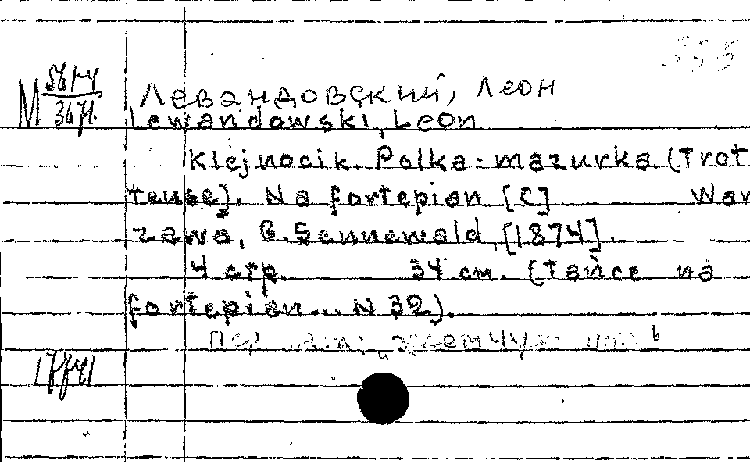 Левандовский, Леон
Lewandowski, Leon
Klejnocik. Polka-mazurka (Trot
teuse). Na fortepian [C] War
zawa, G. Sennewald, [1874].
4 стр. 34 см. (Tańce na
fortepian... N 32).